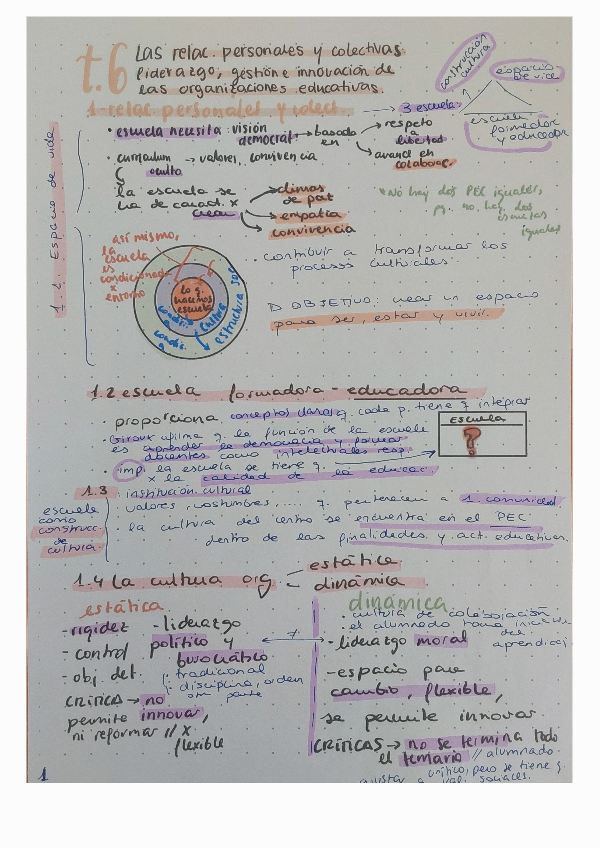 t.6 Las relac. personales y colectivas.
liderazgo, gestión e innovación de
las organizaciones educativas.
construcción
cultura
espacio
de vida
escuela
formadora
y educadora
1-relac personales y colect. → 3 escuela
1.1. Espacio de vida
• escuela necesita visión
democrat → basada
en
respeto
a
libertad
avanzar en
colaborac.
• curriculum → valores, convivencia
oculto
la escuela se
ha de caract. x
crear
climas
de paz
empatía
convivencia
*No hay dos PEC iguales,
pq. no hay dos
escuelas
iguales
así mismo,
la
escuela
es
condicionada
x
entorno
lo q.
hacemos
escuela
cultura
estructura soc
contribuir a transformar los
procesos culturales.
OBJETIVO: crear un espacio
para ser, estar y vivir.
1.2 escuela formadora - educadora
• proporciona conceptos claros q. cada p. tiene q integrar
• Giroux afirma q. la función de la escuela
es aprender la democracia y formar
docentes como intelectuales resp.
• imp. la escuela se tiene q.
x la calidad de la educac.
Escuela
?
1.3
escuela
como
construcc.
de
cultura
institución cultural
valores, costumbres, .... q. pertenecen a 1. comunidad
• la cultura del centro se encuentra en el PEC
dentro de las finalidades y act. educativas.
1.4 La cultura org
estática
dinámica
estática
-rigidez -liderazgo
- control político y
burocrático
-obj. det. • tradicional
• disciplina, orden
CRÍTICA → no
permite innovar,
ni reformar // x
flexible
≠
dinámica
• cultura de colaboración
el alumnado toma
del
aprendizaj.
-liderazgo moral
-espacio para
cambio, flexible,
se permite innovar
CRÍTICAS → no se termina todo
el temario // alumnado
crítico, pero se tiene q.
ajustar a val. sociales.
1